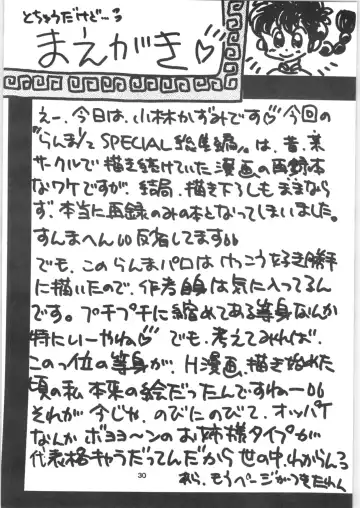 とちゅうだけど…る
まえがき♡
えー、今日は、小林かずみです♡今回の
"らんま1/2 SPECIAL総集編"は、昔、某
サークルで描き続けていた漫画の再録本
なワケですが、結局、描き下ろしもままなら
ず、本当に再録のみの本となってしまいました。
すんまへん 反省してます
でも、このらんまパロはけっこう好き勝手
に描いたので、作者自身は気に入ってるん
です。プチプチに縮めてある等身なんか
特にいーやね♡でも、考えてみれば、
このっ位の等身が、H漫画、描き始めた
頃の私本来の絵だったんですねー
それが今じゃ、のびにのびて、オッパイ
なんかボヨヨ〜ンのお姉様タイプが
代表格キャラだってんだから世の中、わからんろ
あら、もうページがつきたわん
30